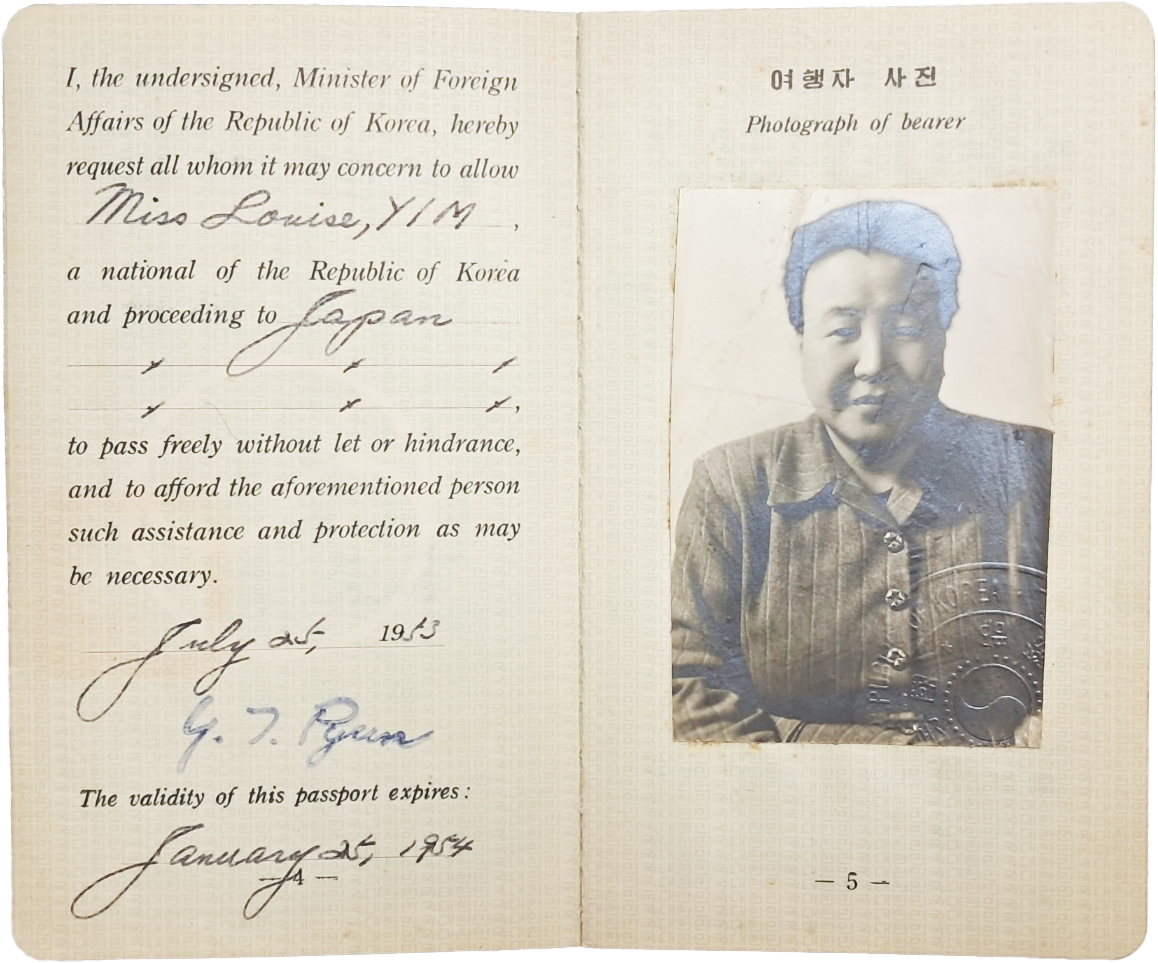 I, the undersigned, Minister of Foreign
Affairs of the Republic of Korea, hereby
request all whom it may concern to allow
Miss Louise, YIM ,
a national of the Republic of Korea
and proceeding to Japan
,
to pass freely without let or hindrance,
and to afford the aforementioned person
such assistance and protection as may
be necessary.
July 25, 1953
Y. T. Pyun
The validity of this passport expires:
January 25, 1954
— 4 —
여행자 사진
Photograph of bearer
OF KOREA
— 5 —